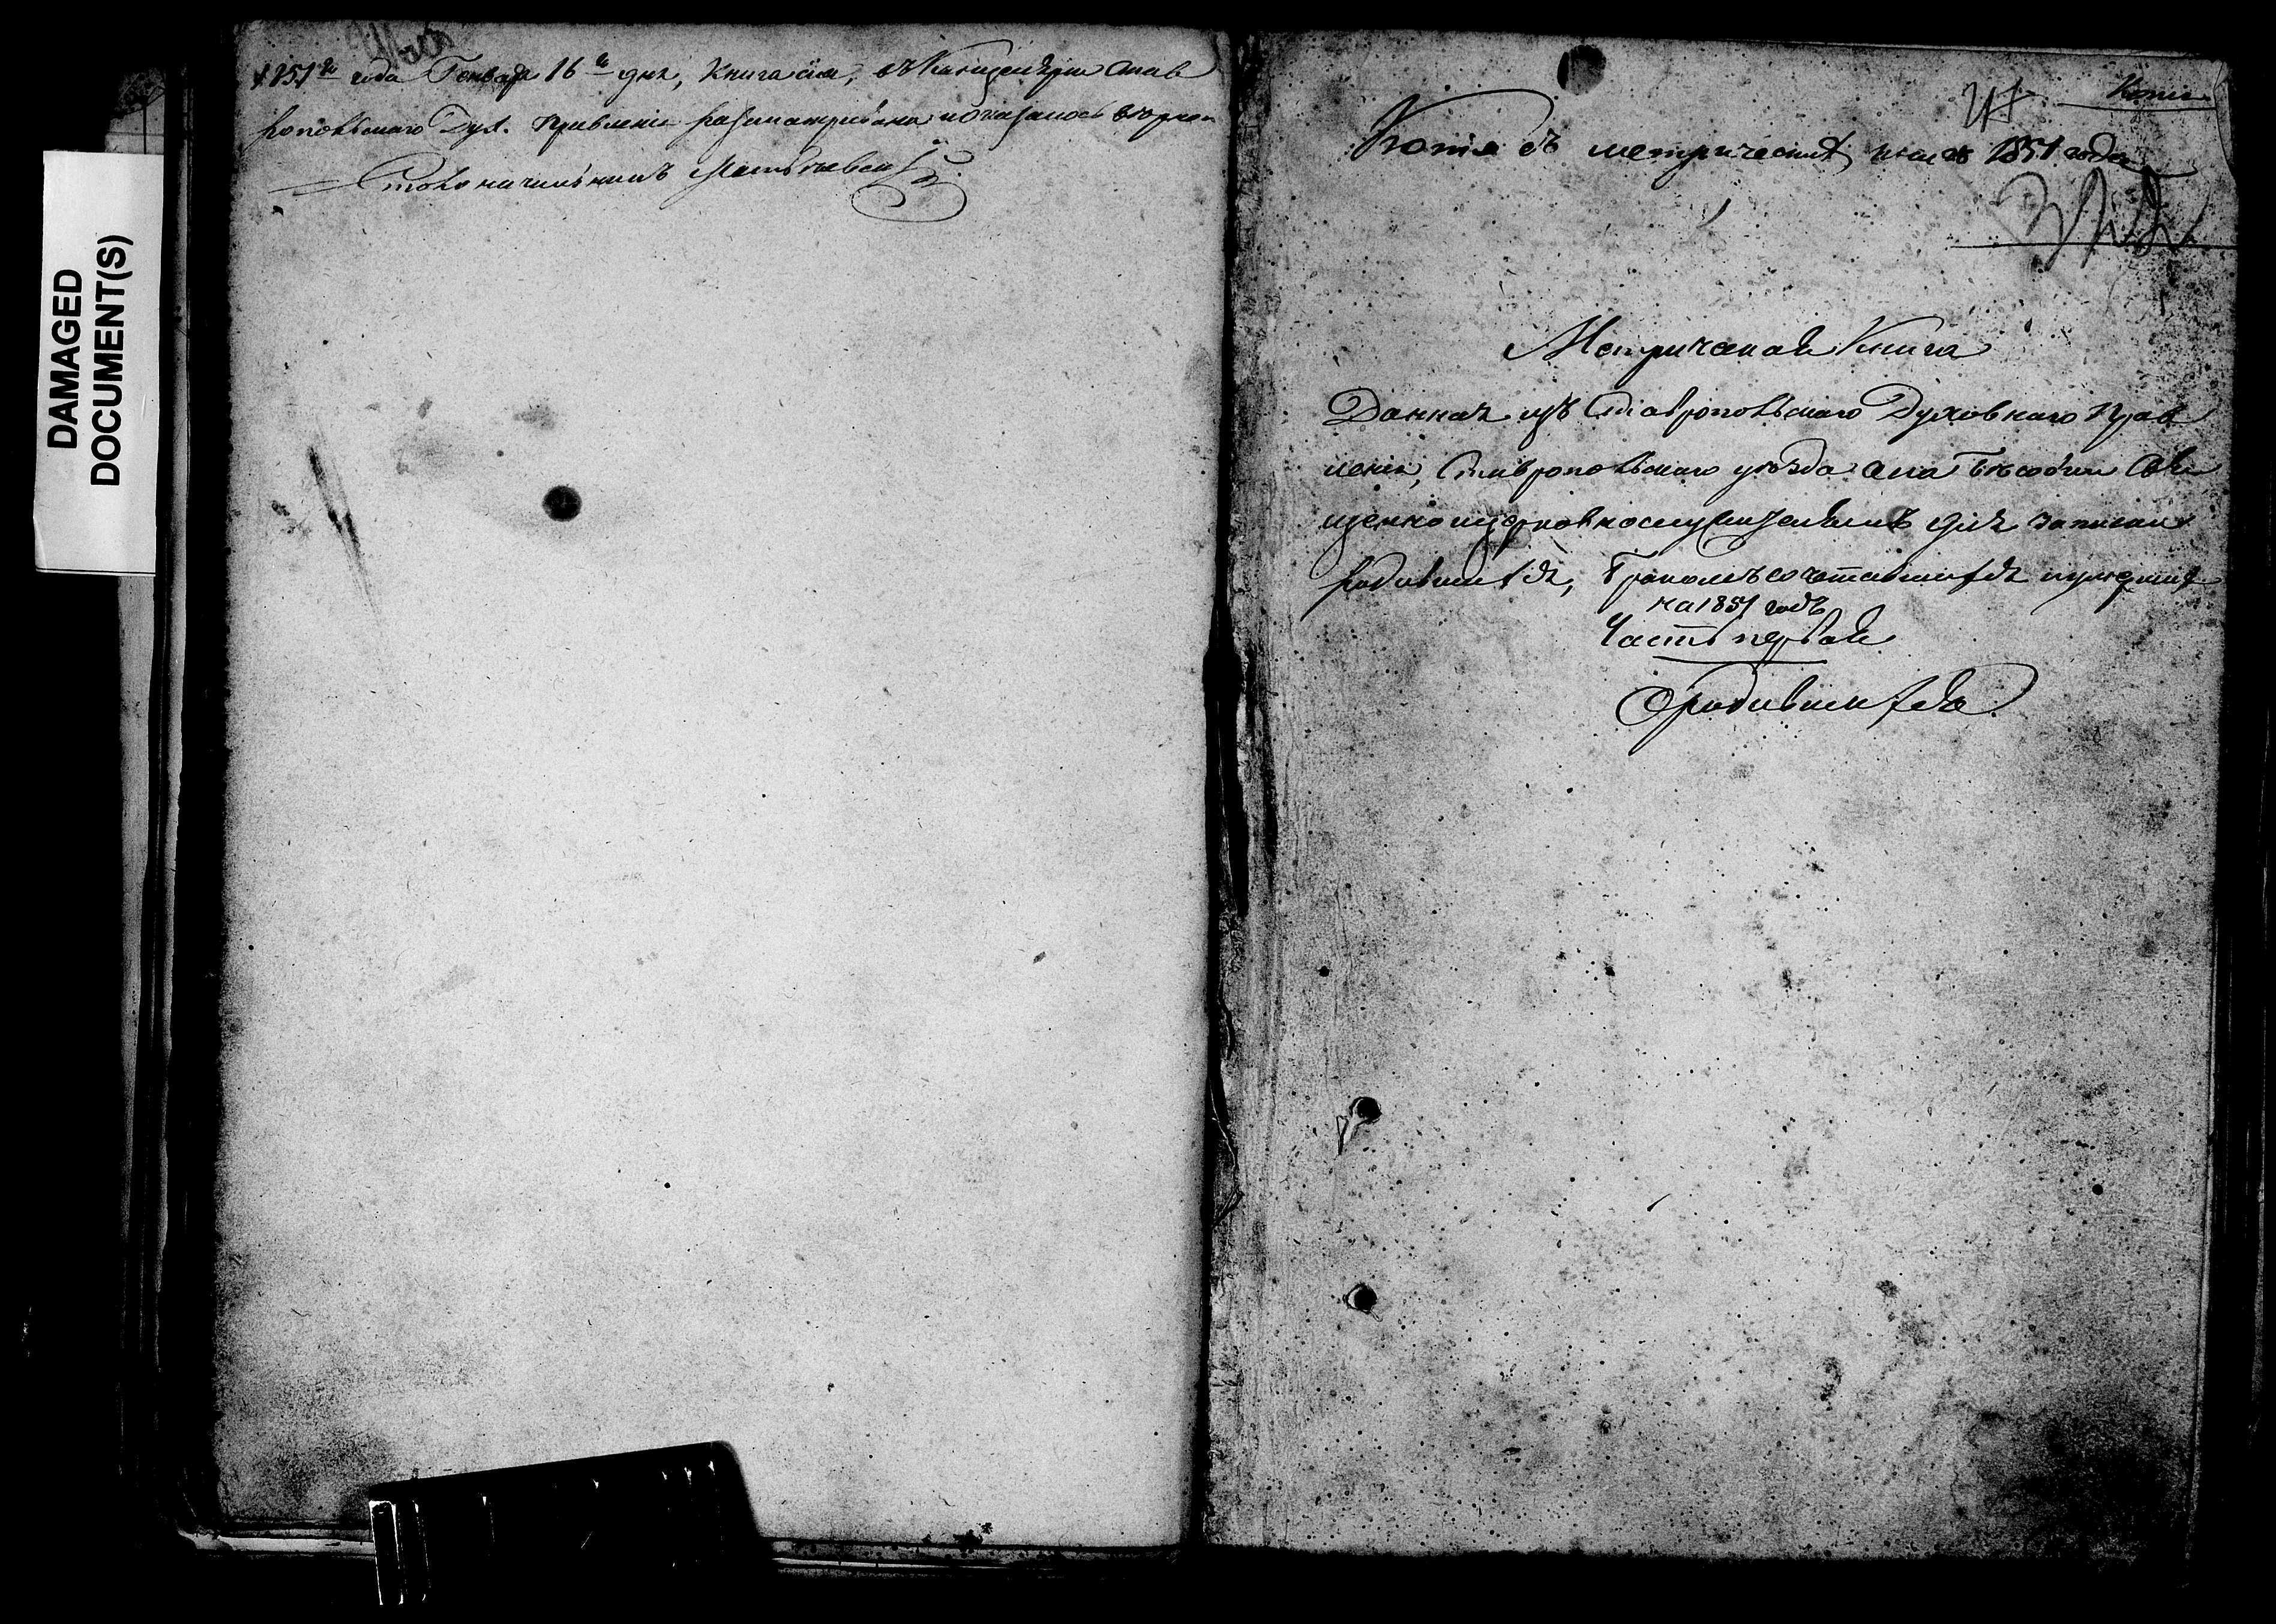 DAMAGED
DOCUMENT(S)
1851го года Генваря 16го дня, Книга сія, въ Канцеляріи Став
ропольскаго Дух. Правленія разсматривана и оказалось верною
Столоначальникъ
Копія
Копія съ метрическихъ книгъ 1851 года
Метрическая Книга
Данная изъ Ставропольскаго Духовнаго Прав
ленія, Ставропольскаго уѣзда села Свя
щенноцерковнослужителямъ для записки
родившихся, бракомъ сочетавшихся и умершихъ
на 1851 годъ
Часть первая
О родившихся